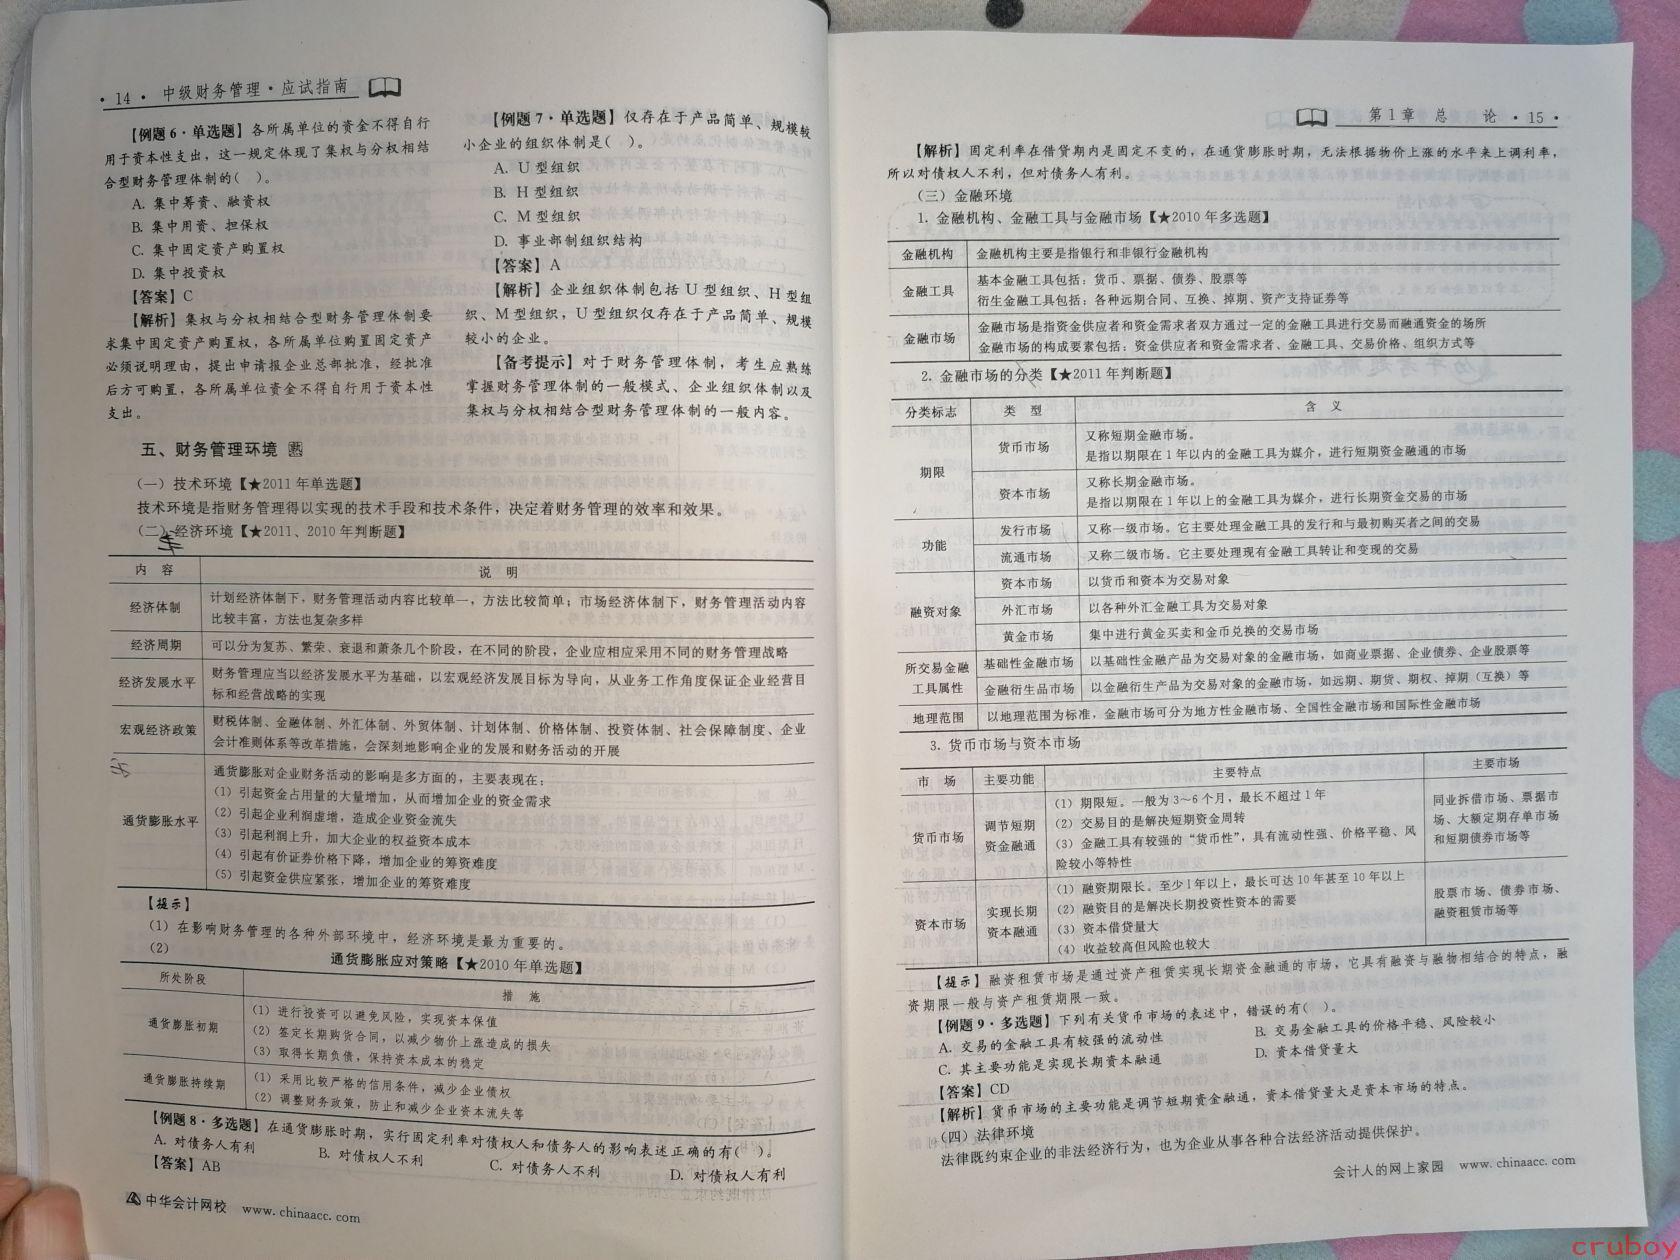 · 14 · 中级财务管理·应试指南
【例题6·单选题】各所属单位的资金不得自行
用于资本性支出，这一规定体现了集权与分权相结
合型财务管理体制的（ ）。
A. 集中筹资、融资权
B. 集中用资、担保权
C. 集中固定资产购置权
D. 集中投资权
【答案】C
【解析】集权与分权相结合型财务管理体制要
求集中固定资产购置权，各所属单位购置固定资产
必须说明理由，提出申请报企业总部批准，经批准
后方可购置，各所属单位资金不得自行用于资本性
支出。
【例题7·单选题】仅存在于产品简单、规模较
小企业的组织体制是（ ）。
A. U型组织
B. H型组织
C. M型组织
D. 事业部制组织结构
【答案】A
【解析】企业组织体制包括U型组织、H型组
织、M型组织，U型组织仅存在于产品简单、规模
较小的企业。
【备考提示】对于财务管理体制，考生应熟练
掌握财务管理体制的一般模式、企业组织体制以及
集权与分权相结合型财务管理体制的一般内容。
五、财务管理环境 熟
（一）技术环境【★2011年单选题】
技术环境是指财务管理得以实现的技术手段和技术条件，决定着财务管理的效率和效果。
（二）经济环境【★2011、2010年判断题】
内 容 说 明
经济体制 计划经济体制下，财务管理活动内容比较单一，方法比较简单；市场经济体制下，财务管理活动内容
比较丰富，方法也复杂多样
经济周期 可以分为复苏、繁荣、衰退和萧条几个阶段，在不同的阶段，企业应相应采用不同的财务管理战略
经济发展水平 财务管理应当以经济发展水平为基础，以宏观经济发展目标为导向，从业务工作角度保证企业经营目
标和经营战略的实现
宏观经济政策 财税体制、金融体制、外汇体制、外贸体制、计划体制、价格体制、投资体制、社会保障制度、企业
会计准则体系等改革措施，会深刻地影响企业的发展和财务活动的开展
通货膨胀水平 通货膨胀对企业财务活动的影响是多方面的，主要表现在：
（1）引起资金占用量的大量增加，从而增加企业的资金需求
（2）引起企业利润虚增，造成企业资金流失
（3）引起利润上升，加大企业的权益资本成本
（4）引起有价证券价格下降，增加企业的筹资难度
（5）引起资金供应紧张，增加企业的筹资难度
【提示】
（1）在影响财务管理的各种外部环境中，经济环境是最为重要的。
（2）
通货膨胀应对策略【★2010年单选题】
所处阶段 措 施
通货膨胀初期 （1）进行投资可以避免风险，实现资本保值
（2）签定长期购货合同，以减少物价上涨造成的损失
（3）取得长期负债，保持资本成本的稳定
通货膨胀持续期 （1）采用比较严格的信用条件，减少企业债权
（2）调整财务政策，防止和减少企业资本流失等
【例题8·多选题】在通货膨胀时期，实行固定利率对债权人和债务人的影响表述正确的有（ ）。
A. 对债务人有利 B. 对债权人不利 C. 对债务人不利 D. 对债权人有利
【答案】AB
中华会计网校 www.chinaacc.com
第1章 总 论 · 15 ·
【解析】固定利率在借贷期内是固定不变的，在通货膨胀时期，无法根据物价上涨的水平来上调利率，
所以对债权人不利，但对债务人有利。
（三）金融环境
1. 金融机构、金融工具与金融市场【★2010年多选题】
金融机构 金融机构主要是指银行和非银行金融机构
金融工具 基本金融工具包括：货币、票据、债券、股票等
衍生金融工具包括：各种远期合同、互换、掉期、资产支持证券等
金融市场 金融市场是指资金供应者和资金需求者双方通过一定的金融工具进行交易而融通资金的场所
金融市场的构成要素包括：资金供应者和资金需求者、金融工具、交易价格、组织方式等
2. 金融市场的分类【★2011年判断题】
分类标志 类 型 含 义
期限 货币市场 又称短期金融市场。
是指以期限在1年以内的金融工具为媒介，进行短期资金融通的市场
资本市场 又称长期金融市场。
是指以期限在1年以上的金融工具为媒介，进行长期资金交易的市场
功能 发行市场 又称一级市场。它主要处理金融工具的发行和与最初购买者之间的交易
流通市场 又称二级市场。它主要处理现有金融工具转让和变现的交易
融资对象 资本市场 以货币和资本为交易对象
外汇市场 以各种外汇金融工具为交易对象
黄金市场 集中进行黄金买卖和金币兑换的交易市场
所交易金融工具属性 基础性金融市场 以基础性金融产品为交易对象的金融市场，如商业票据、企业债券、企业股票等
金融衍生品市场 以金融衍生产品为交易对象的金融市场，如远期、期货、期权、掉期（互换）等
地理范围 以地理范围为标准，金融市场可分为地方性金融市场、全国性金融市场和国际性金融市场
3. 货币市场与资本市场
市 场 主要功能 主要特点 主要市场
货币市场 调节短期资金融通 （1）期限短。一般为3～6个月，最长不超过1年
（2）交易目的是解决短期资金周转
（3）金融工具有较强的“货币性”，具有流动性强、价格平稳、风
险较小等特性
同业拆借市场、票据市
场、大额定期存单市场
和短期债券市场等
资本市场 实现长期资本融通 （1）融资期限长。至少1年以上，最长可达10年甚至10年以上
（2）融资目的是解决长期投资性资本的需要
（3）资本借贷量大
（4）收益较高但风险也较大
股票市场、债券市场、
融资租赁市场等
【提示】融资租赁市场是通过资产租赁实现长期资金融通的市场，它具有融资与融物相结合的特点，融
资期限一般与资产租赁期限一致。
【例题9·多选题】下列有关货币市场的表述中，错误的有（ ）。
A. 交易的金融工具有较强的流动性 B. 交易金融工具的价格平稳、风险较小
C. 其主要功能是实现长期资本融通 D. 资本借贷量大
【答案】CD
【解析】货币市场的主要功能是调节短期资金融通，资本借贷量大是资本市场的特点。
（四）法律环境
法律既约束企业的非法经济行为，也为企业从事各种合法经济活动提供保护。
会计人的网上家园 www.chinaacc.com
cruboy